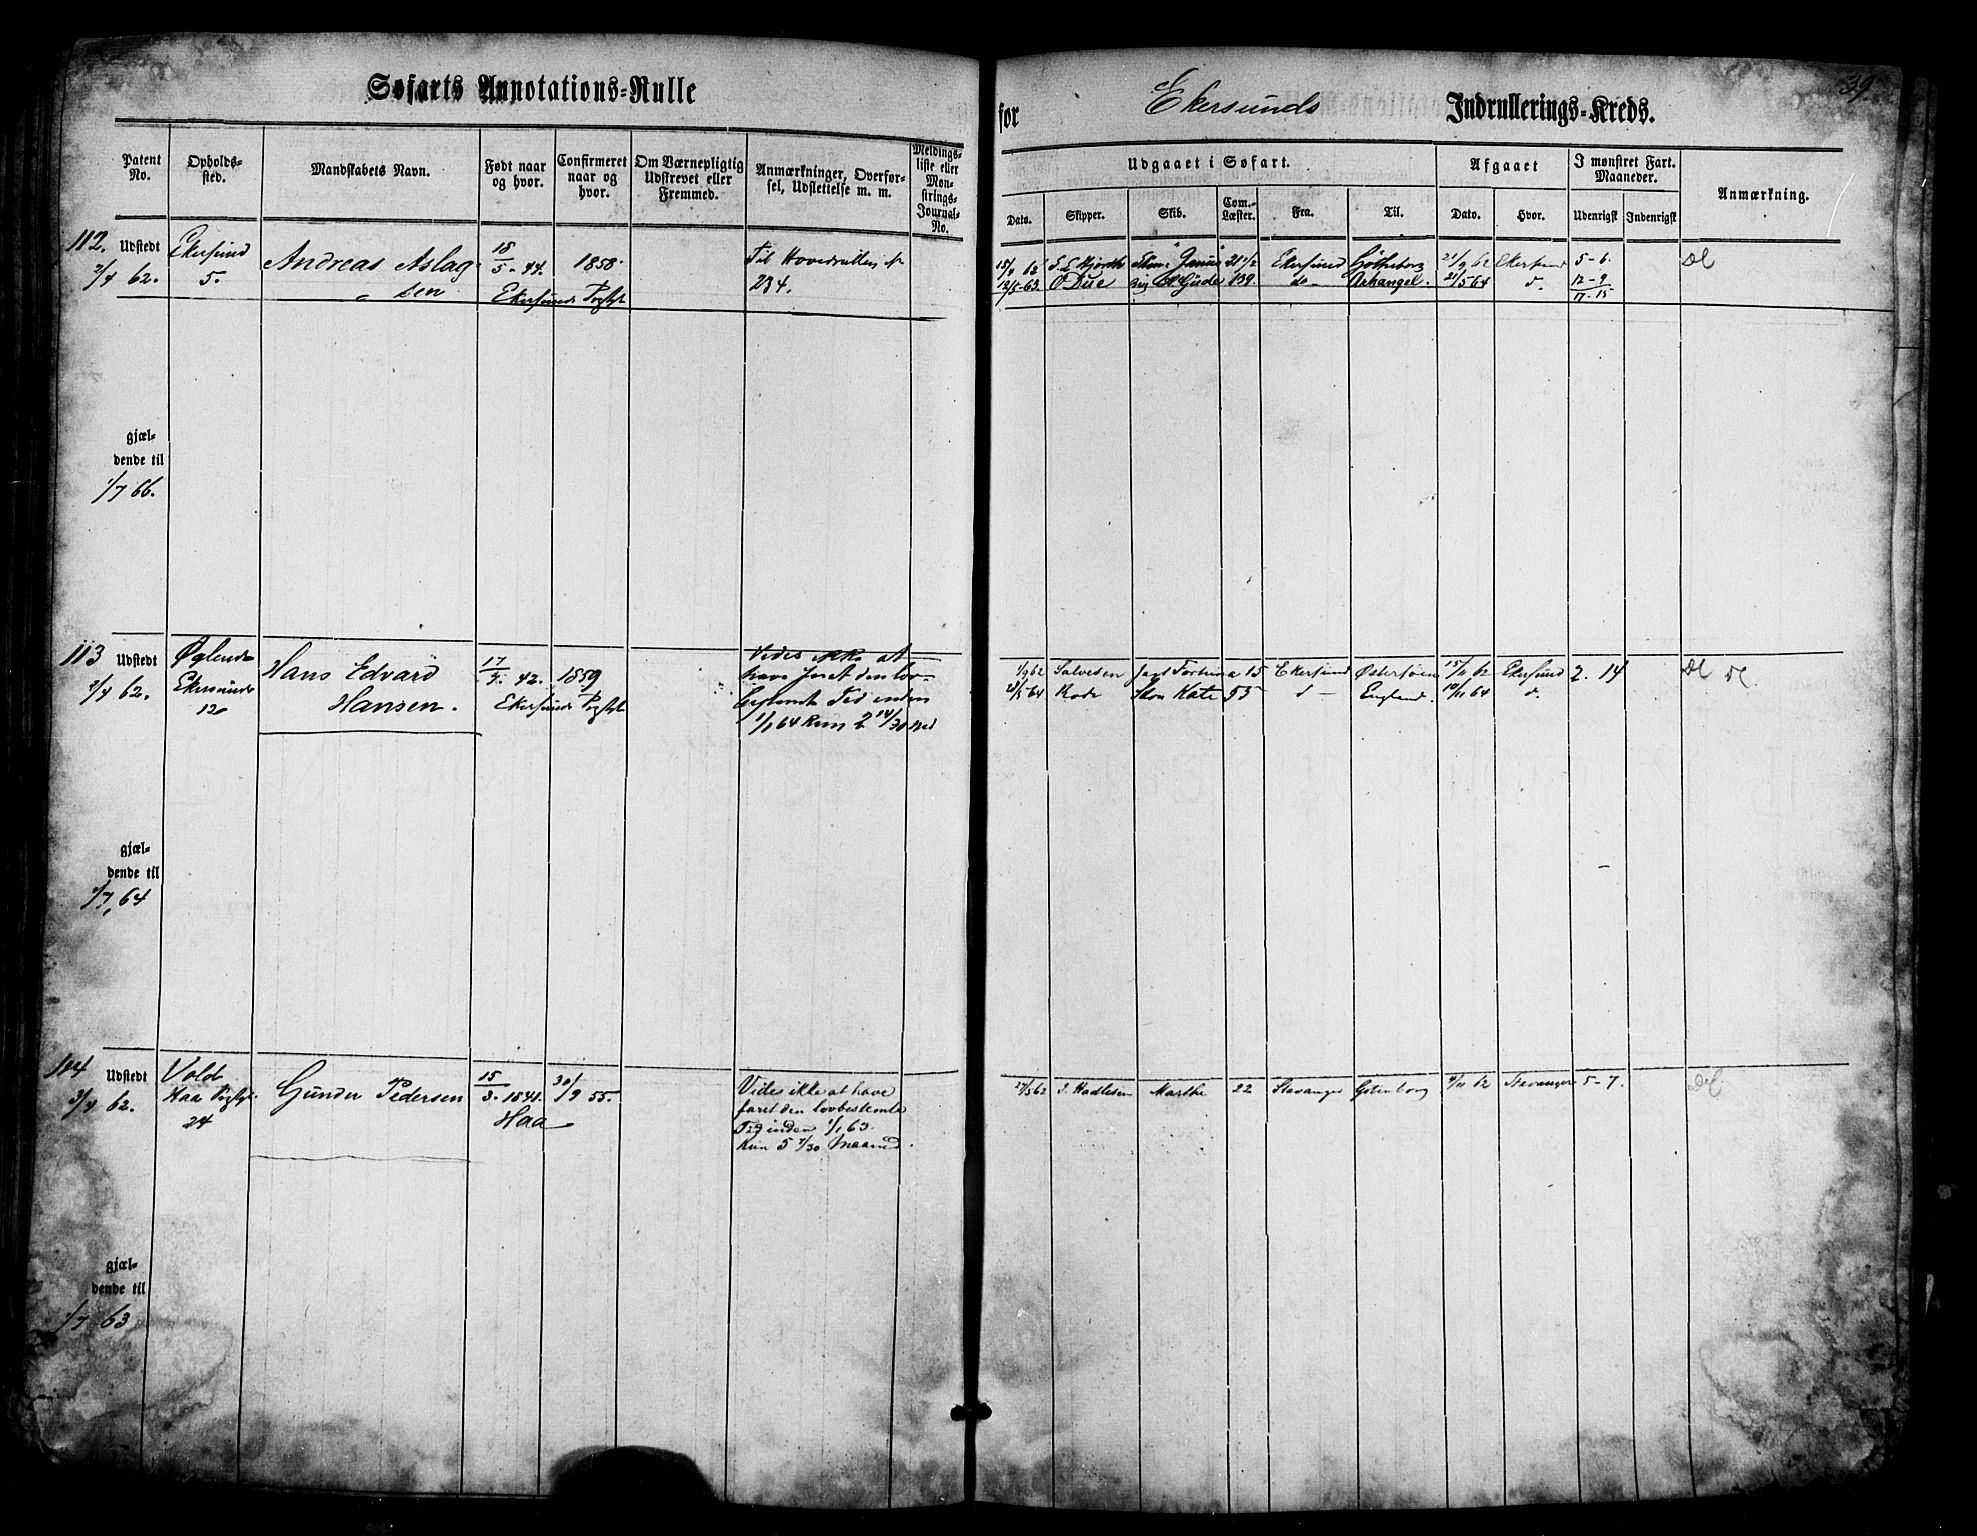 Søfarts Annotations=Rulle
for Ekersunds Indrullerings=Kreds.
39
Patent No.
Opholds=sted.
Mandskabets Navn.
Født naar og hvor.
Confirmeret naar og hvor.
Om Værnepligtig Udskrevet eller Fremmed.
Anmærkninger, Overførsel, Udslettelse m. m.
Meldings=liste eller Mønstrings=Journal=No.
Udgaaet i Søfart.
Dato. Skipper. Skib. Com.=Læster. Fra. Til.
Afgaaet
Dato. Hvor.
I mønstret Fart. Maaneder.
Udenrigsk Indenrigsk
Anmærkning.
112.
Udstedt
2/4 62.
Ekersund
5.
Andreas Aslag
sen
18/5 - 44.
Ekersunds Prgjld
1858.
Til Hovedrullen №
234.
15/4 62 Hjorth Janus 21 1/2 Ekersund Gøtheborg 21/9 62 Ekersund 5 - 6.
12/5 - 63. O Due Brig 139. do - Arhangel. 21/5 64 d. 12 - 9
17 - 15
gjæl=
dende til
1/7 66.
113
Udstedt
2/4 62.
Øglend
Ekersunds
12
Hans Edvard
Hansen.
17/7. 42.
Ekersunds Prgjld
1859
Vides ikke at
have faret den lov=
bestemte Tid inden
1/1 64 Kun 2 14/30 Md
1/9 62 Salvesen Jagt Fortuna 15 Ekersund Østersøen 15/11 62 Ekersund 2. 14
Rode Skon Kate 55 d - England. 10/11 64 d.
gjæl=
dende til
1/7, 64
114
Udstedt
3/4 62.
Vold
Haa Prgjld.
24
Gunder Pedersen
15/3. 1841.
Haa
30/9 55.
Vides ikke at have
faret den lovbestemte
Tid inden 1/1 63.
Kun 5 7/30 Maaned.
27/5 62 I. Hadlesen Marthe 22 Stavanger Gotenborg 4/11 62 Stavanger 5 - 7.
gjæl=
dende til
1/7 63